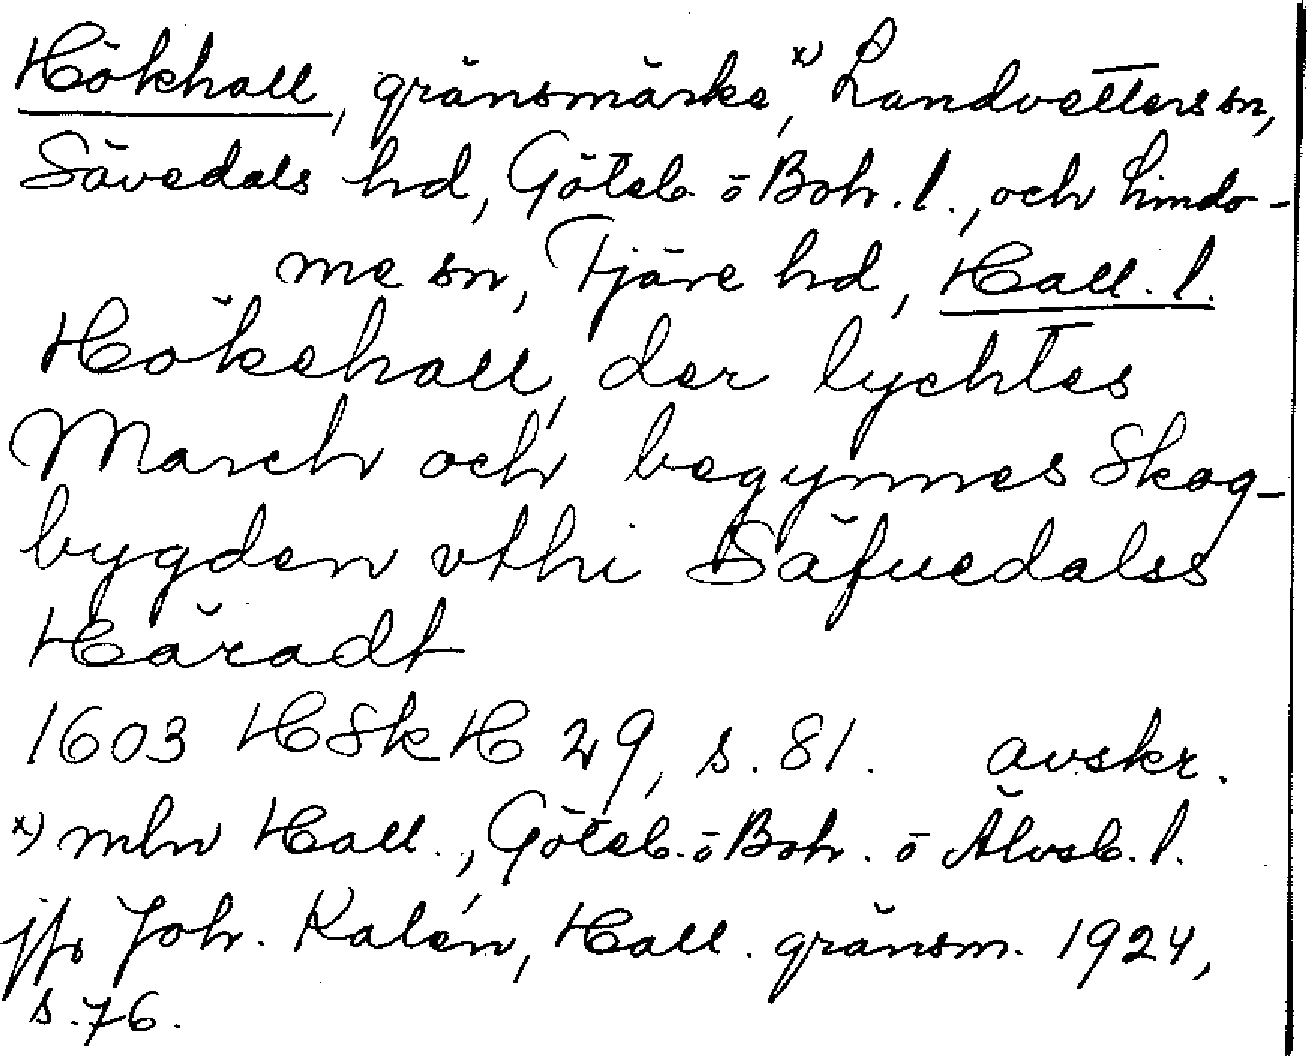 Hökhall, gränsmärke,ˣ⁾ Landvetters sn,
Sävedals hd, Göteb. o Boh. l., och Lindo-
me sn, Fjäre hd, Hall. l.
Hökehall, der lychtes
March och begynnes Skog-
bygden vthi Säfuedalss
Häradt
1603 HSkH 29, s. 81. avskr.
ˣ⁾ mln Hall., Göteb. o Boh. o Älvsb. l.
jfr Joh. Kalén, Hall. gränsm. 1924,
s. 76.